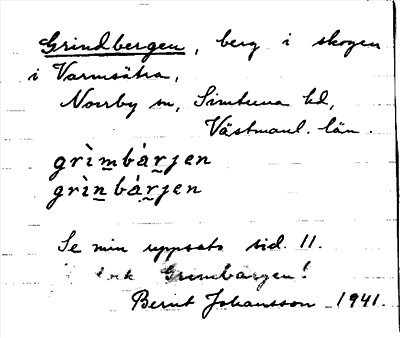 Grindbergen, berg i skogen
i Varmsätra,
Norrby sn, Simtuna hd,
Västmanl. län.
grìm̲bàr̰jen
grìn̲bàr̰jen
Se min uppsats sid. 11.
Grimbärgen!
Bernt Johansson 1941.